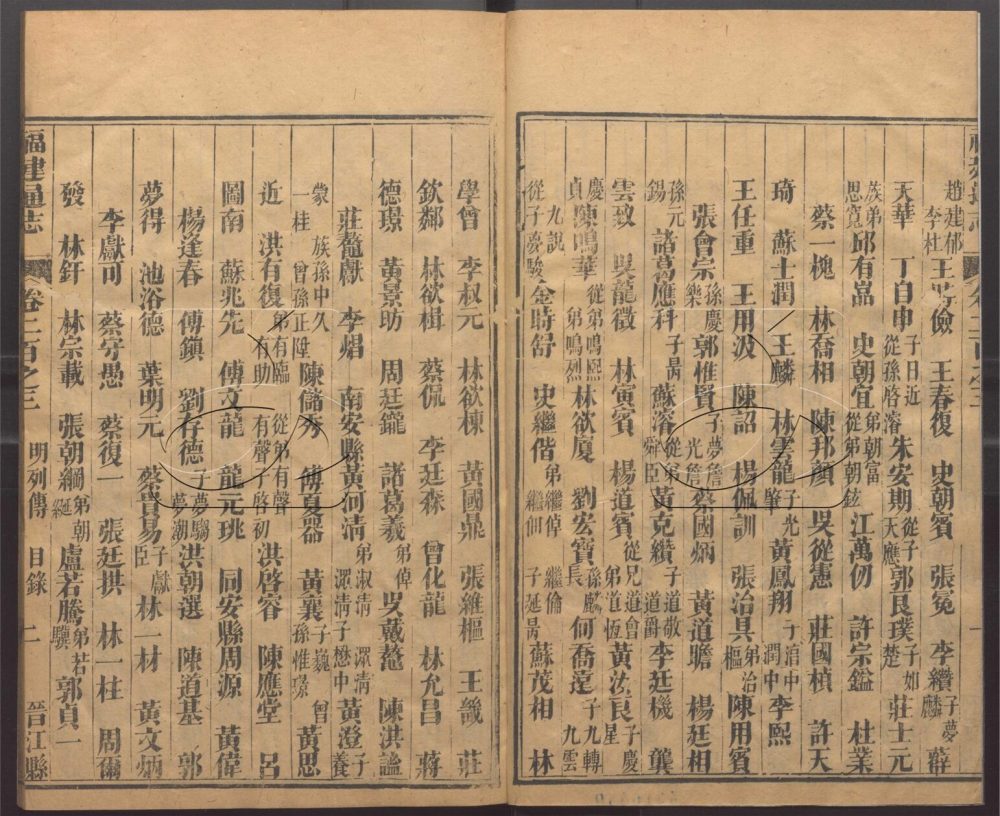 趙建郁李杜王時儉 王春復 史朝賓 張冕 李纘子夢麟 薛
天華 丁自申子日近從孫啓濬朱安期從子天應郭良璞子如楚 莊士元
族弟思寬邱有嵓 史朝宜弟朝富從弟朝鉉 江萬仞 許宗鎰 杜業
蔡一槐 林喬相 陳邦顏 吳從憲 莊國楨 許天
琦 蘇士潤 王麟 林雲龍子光肇 黃鳳翔子潤中 李熙
王任重 王用汲 陳詔 楊佩訓 張治具弟治樞 陳用賓
張會宗孫慶樂 郭惟賢子夢詹光詹蔡國炳 黃道瞻 楊廷相
孫元錫 諸葛應科子昺 蘇濬從弟舜臣 黃克纘子道敬道爵 李廷機 龔
雲致 吳龍徵 林寅賓 楊道賓從兄道會弟道恆 黃汝良子慶星
慶貞 陳鳴華從弟鳴熙弟鳴烈林欲廈 劉宏寶孫麟長 何喬遠子九轉九雲
九說從子慶駿 金時舒 史繼偕弟繼倬繼倫繼佃子延昺 蘇茂相 林
學曾 李叔元 林欲棟 黃國鼎 張維樞 王畿 莊
欽鄰 林欲楫 蔡侃 李廷森 曾化龍 林允昌 蔣
德璟 黃景昉 周廷鑨 諸葛羲弟倬 吳戴鼇 陳洪謐
莊鼇獻 李焻 南安縣黃河清弟淑清深清潔清子懋中 黃澄子養
蒙一桂族孫中久曾孫正陞 陳儲秀 傅夏器 黃襄子巍孫惟璟曾 黃思
近 洪有復弟有臨有助從弟有聲有聲子啓初 洪啓睿 陳應堂 呂
圖南 蘇兆先 傅文龍 龍元珧 同安縣周源 黃偉
楊逢春 傅鎮 劉存德子夢騶夢潮 洪朝選 陳道基 郭
夢得 池浴德 葉明元 蔡貴易子獻臣 林一材 黃文炳
李獻可 蔡守愚 蔡復一 張廷拱 林一柱 周爾
發 林釬 林宗載 張朝綱弟朝綖 盧若騰弟若驥 郭貞一
福建通志 卷二百之三 明列傳 目錄 二 晉江縣